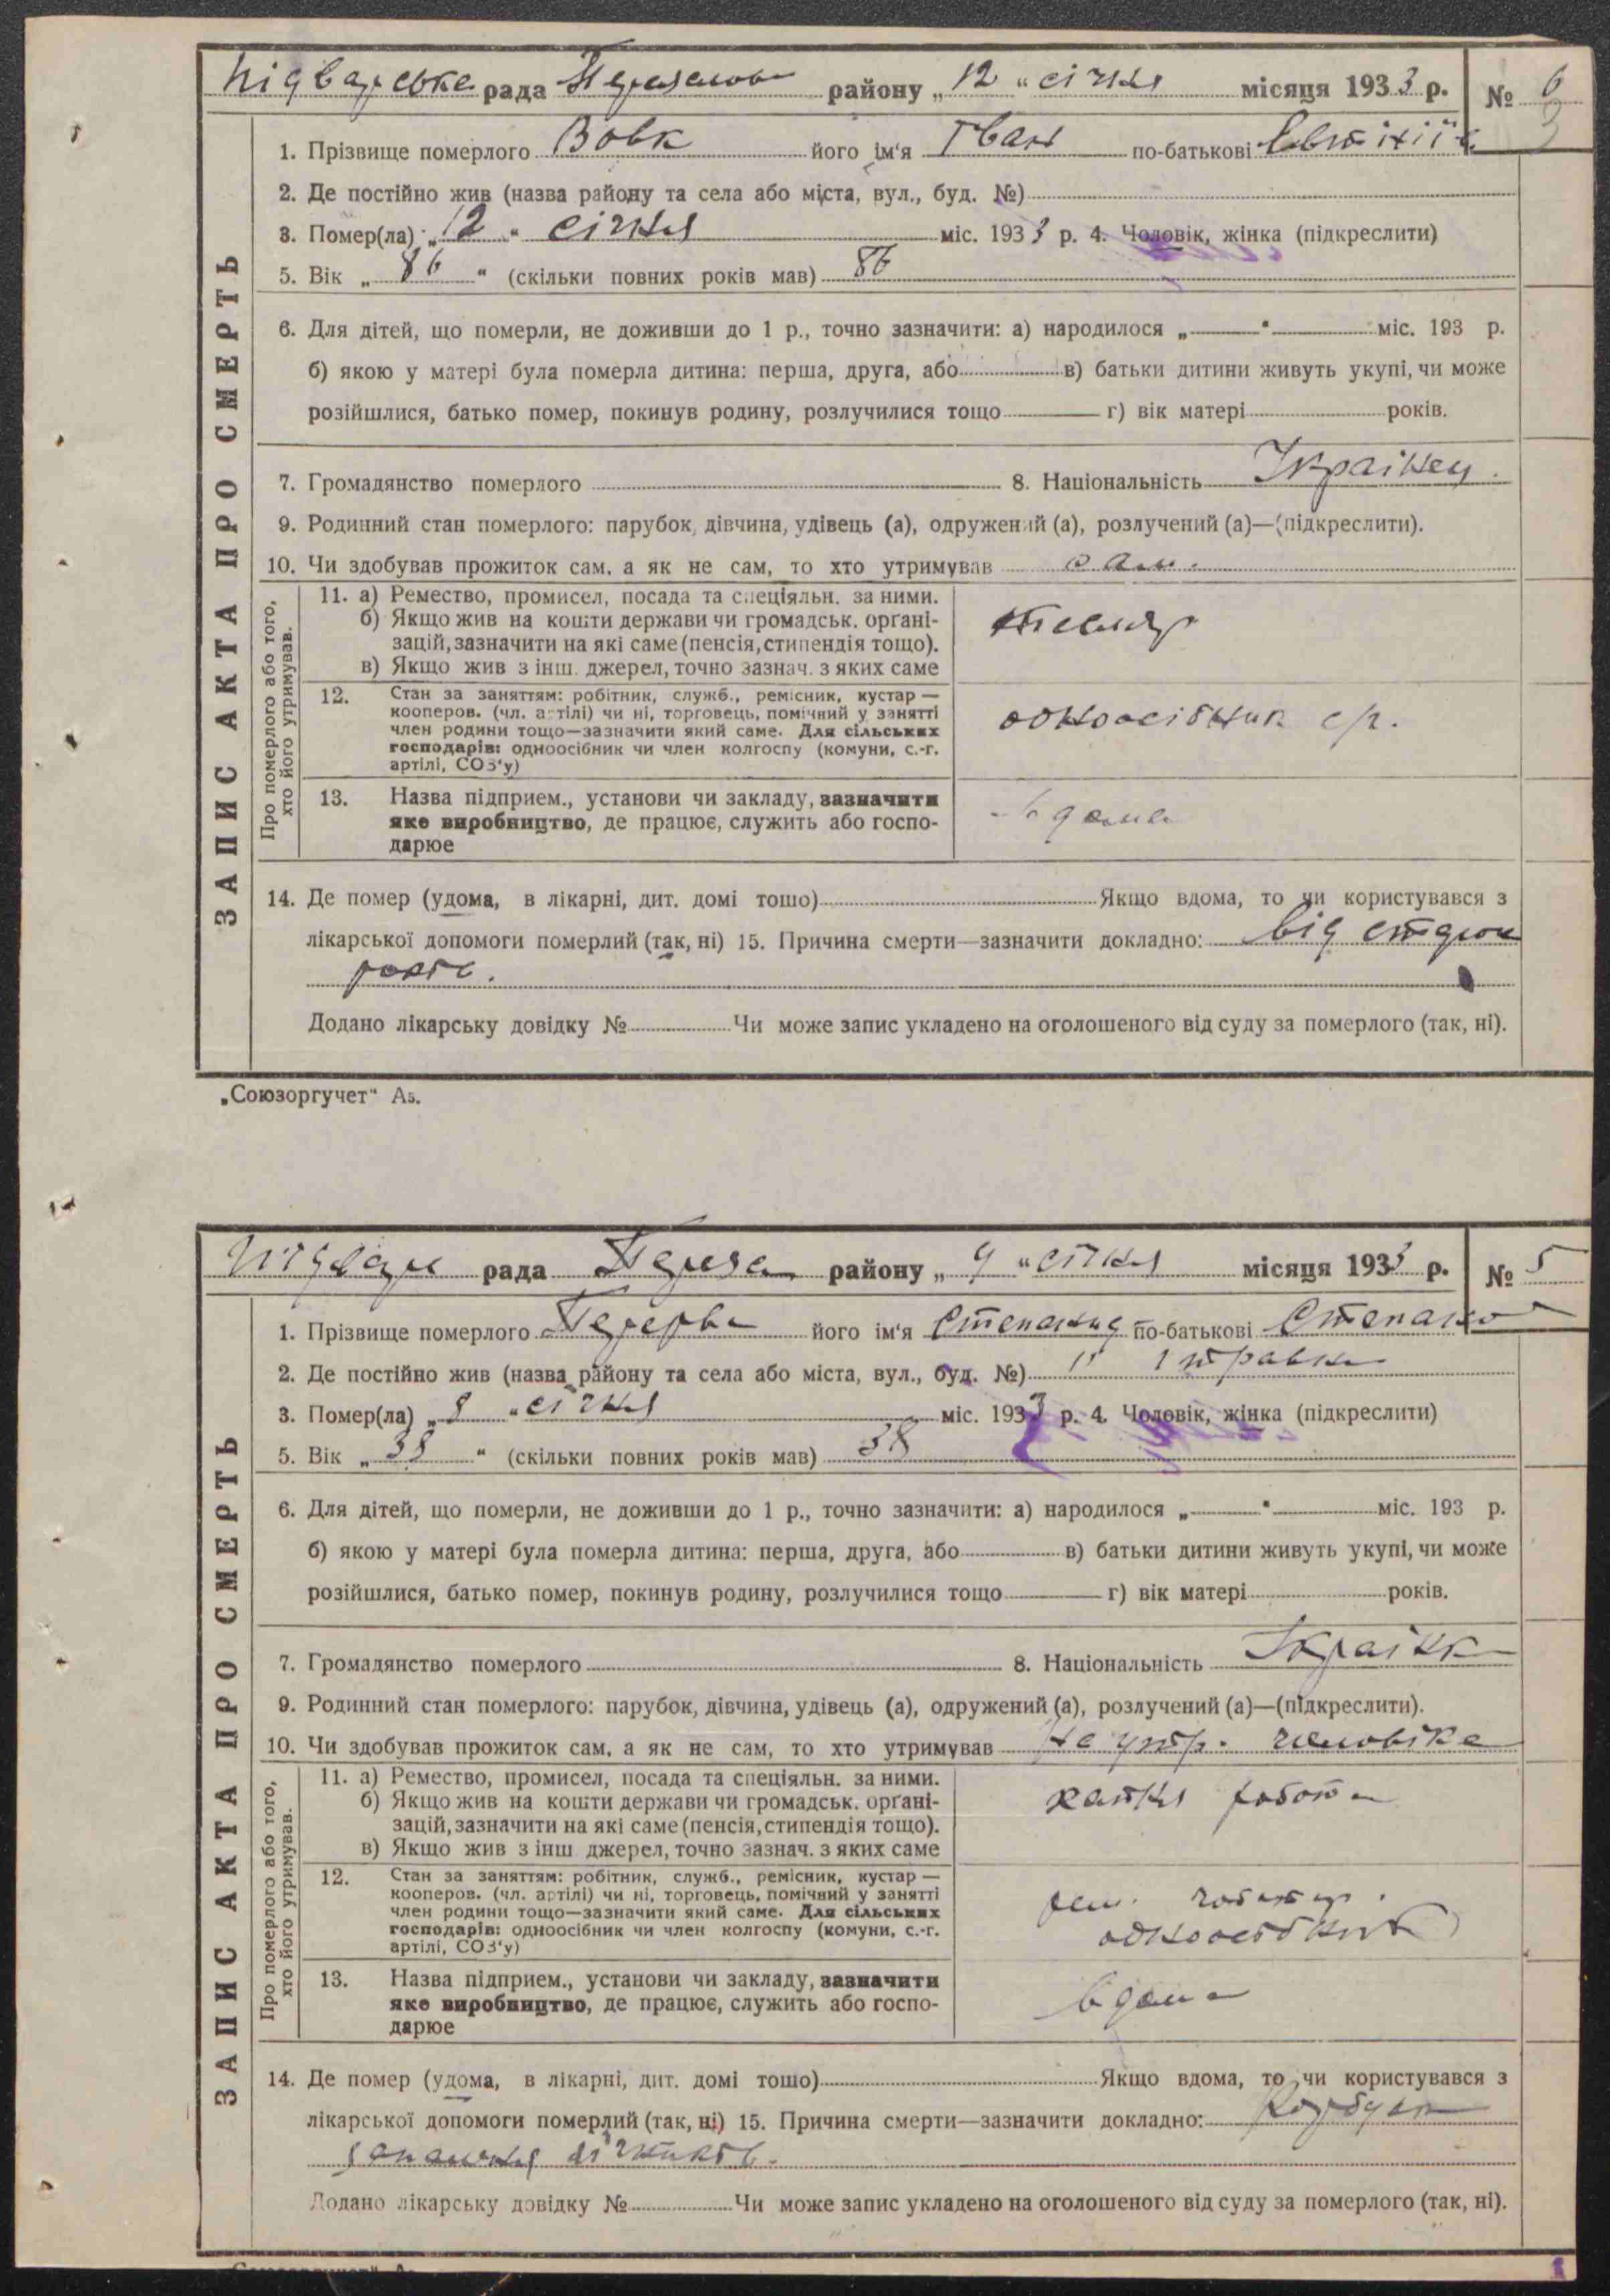 Підварська рада Переяслов району „12“ січня місяця 1933 р. № 6
3
ЗАПИС АКТА ПРО СМЕРТЬ
1. Прізвище померлого Вовк його ім'я Іван по-батькові
2. Де постійно жив (назва району та села або міста, вул., буд. №)
3. Помер(ла) „12“ січня міс. 1933 р. 4. Чоловік, жінка (підкреслити)
5. Вік „86“ (скільки повних років мав) 86
6. Для дітей, що померли, не доживши до 1 р., точно зазначити: а) народилося „ “ міс. 193 р.
б) якою у матері була померла дитина: перша, друга, або в) батьки дитини живуть укупі, чи може
розійшлися, батько помер, покинув родину, розлучилися тощо г) вік матері років.
7. Громадянство померлого 8. Національність Українец
9. Родинний стан померлого: парубок, дівчина, удівець (а), одружений (а), розлучений (а)—(підкреслити).
10. Чи здобував прожиток сам, а як не сам, то хто утримував сам.
Про померлого або того, хто його утримував.
11. а) Ремество, промисел, посада та спеціяльн. за ними.
б) Якщо жив на кошти держави чи громадськ. орґані-
зацій, зазначити на які саме (пенсія, стипендія тощо).
в) Якщо жив з інш. джерел, точно зазнач. з яких саме
12. Стан за заняттям: робітник, служб., ремісник, кустар —
кооперов. (чл. артілі) чи ні, торговець, помічний у занятті
член родини тощо—зазначити який саме. Для сільських
господарів: одноосібник чи член колгоспу (комуни, с.-г.
артілі, СОЗ'у)
одноосібник с/г.
13. Назва підприєм., установи чи закладу, зазначити
яке виробництво, де працює, служить або госпо-
дарює
вдома
14. Де помер (удома, в лікарні, дит. домі тощо) Якщо вдома, то чи користувався з
лікарської допомоги померлий (так, ні) 15. Причина смерти—зазначити докладно: від
Додано лікарську довідку № Чи може запис укладено на оголошеного від суду за померлого (так, ні).
„Союзоргучет“ А5.
Підвар рада Перея району „9“ січня місяця 1933 р. № 5
ЗАПИС АКТА ПРО СМЕРТЬ
1. Прізвище померлого Перерва його ім'я Степанид по-батькові Степанов
2. Де постійно жив (назва району та села або міста, вул., буд. №) 1 травня
3. Помер(ла) „8“ січня міс. 1933 р. 4. Чоловік, жінка (підкреслити)
5. Вік „38“ (скільки повних років мав) 38
6. Для дітей, що померли, не доживши до 1 р., точно зазначити: а) народилося „ “ міс. 193 р.
б) якою у матері була померла дитина: перша, друга, або в) батьки дитини живуть укупі, чи може
розійшлися, батько помер, покинув родину, розлучилися тощо г) вік матері років.
7. Громадянство померлого 8. Національність Українк
9. Родинний стан померлого: парубок, дівчина, удівець (а), одружений (а), розлучений (а)—(підкреслити).
10. Чи здобував прожиток сам, а як не сам, то хто утримував на утр. чоловіка
Про померлого або того, хто його утримував.
11. а) Ремество, промисел, посада та спеціяльн. за ними.
б) Якщо жив на кошти держави чи громадськ. орґані-
зацій, зазначити на які саме (пенсія, стипендія тощо).
в) Якщо жив з інш. джерел, точно зазнач. з яких саме
хатня робота
12. Стан за заняттям: робітник, служб., ремісник, кустар —
кооперов. (чл. артілі) чи ні, торговець, помічний у занятті
член родини тощо—зазначити який саме. Для сільських
господарів: одноосібник чи член колгоспу (комуни, с.-г.
артілі, СОЗ'у)
одноосібник
13. Назва підприєм., установи чи закладу, зазначити
яке виробництво, де працює, служить або госпо-
дарює
вдома
14. Де помер (удома, в лікарні, дит. домі тощо) Якщо вдома, то чи користувався з
лікарської допомоги померлий (так, ні) 15. Причина смерти—зазначити докладно:
Додано лікарську довідку № Чи може запис укладено на оголошеного від суду за померлого (так, ні).